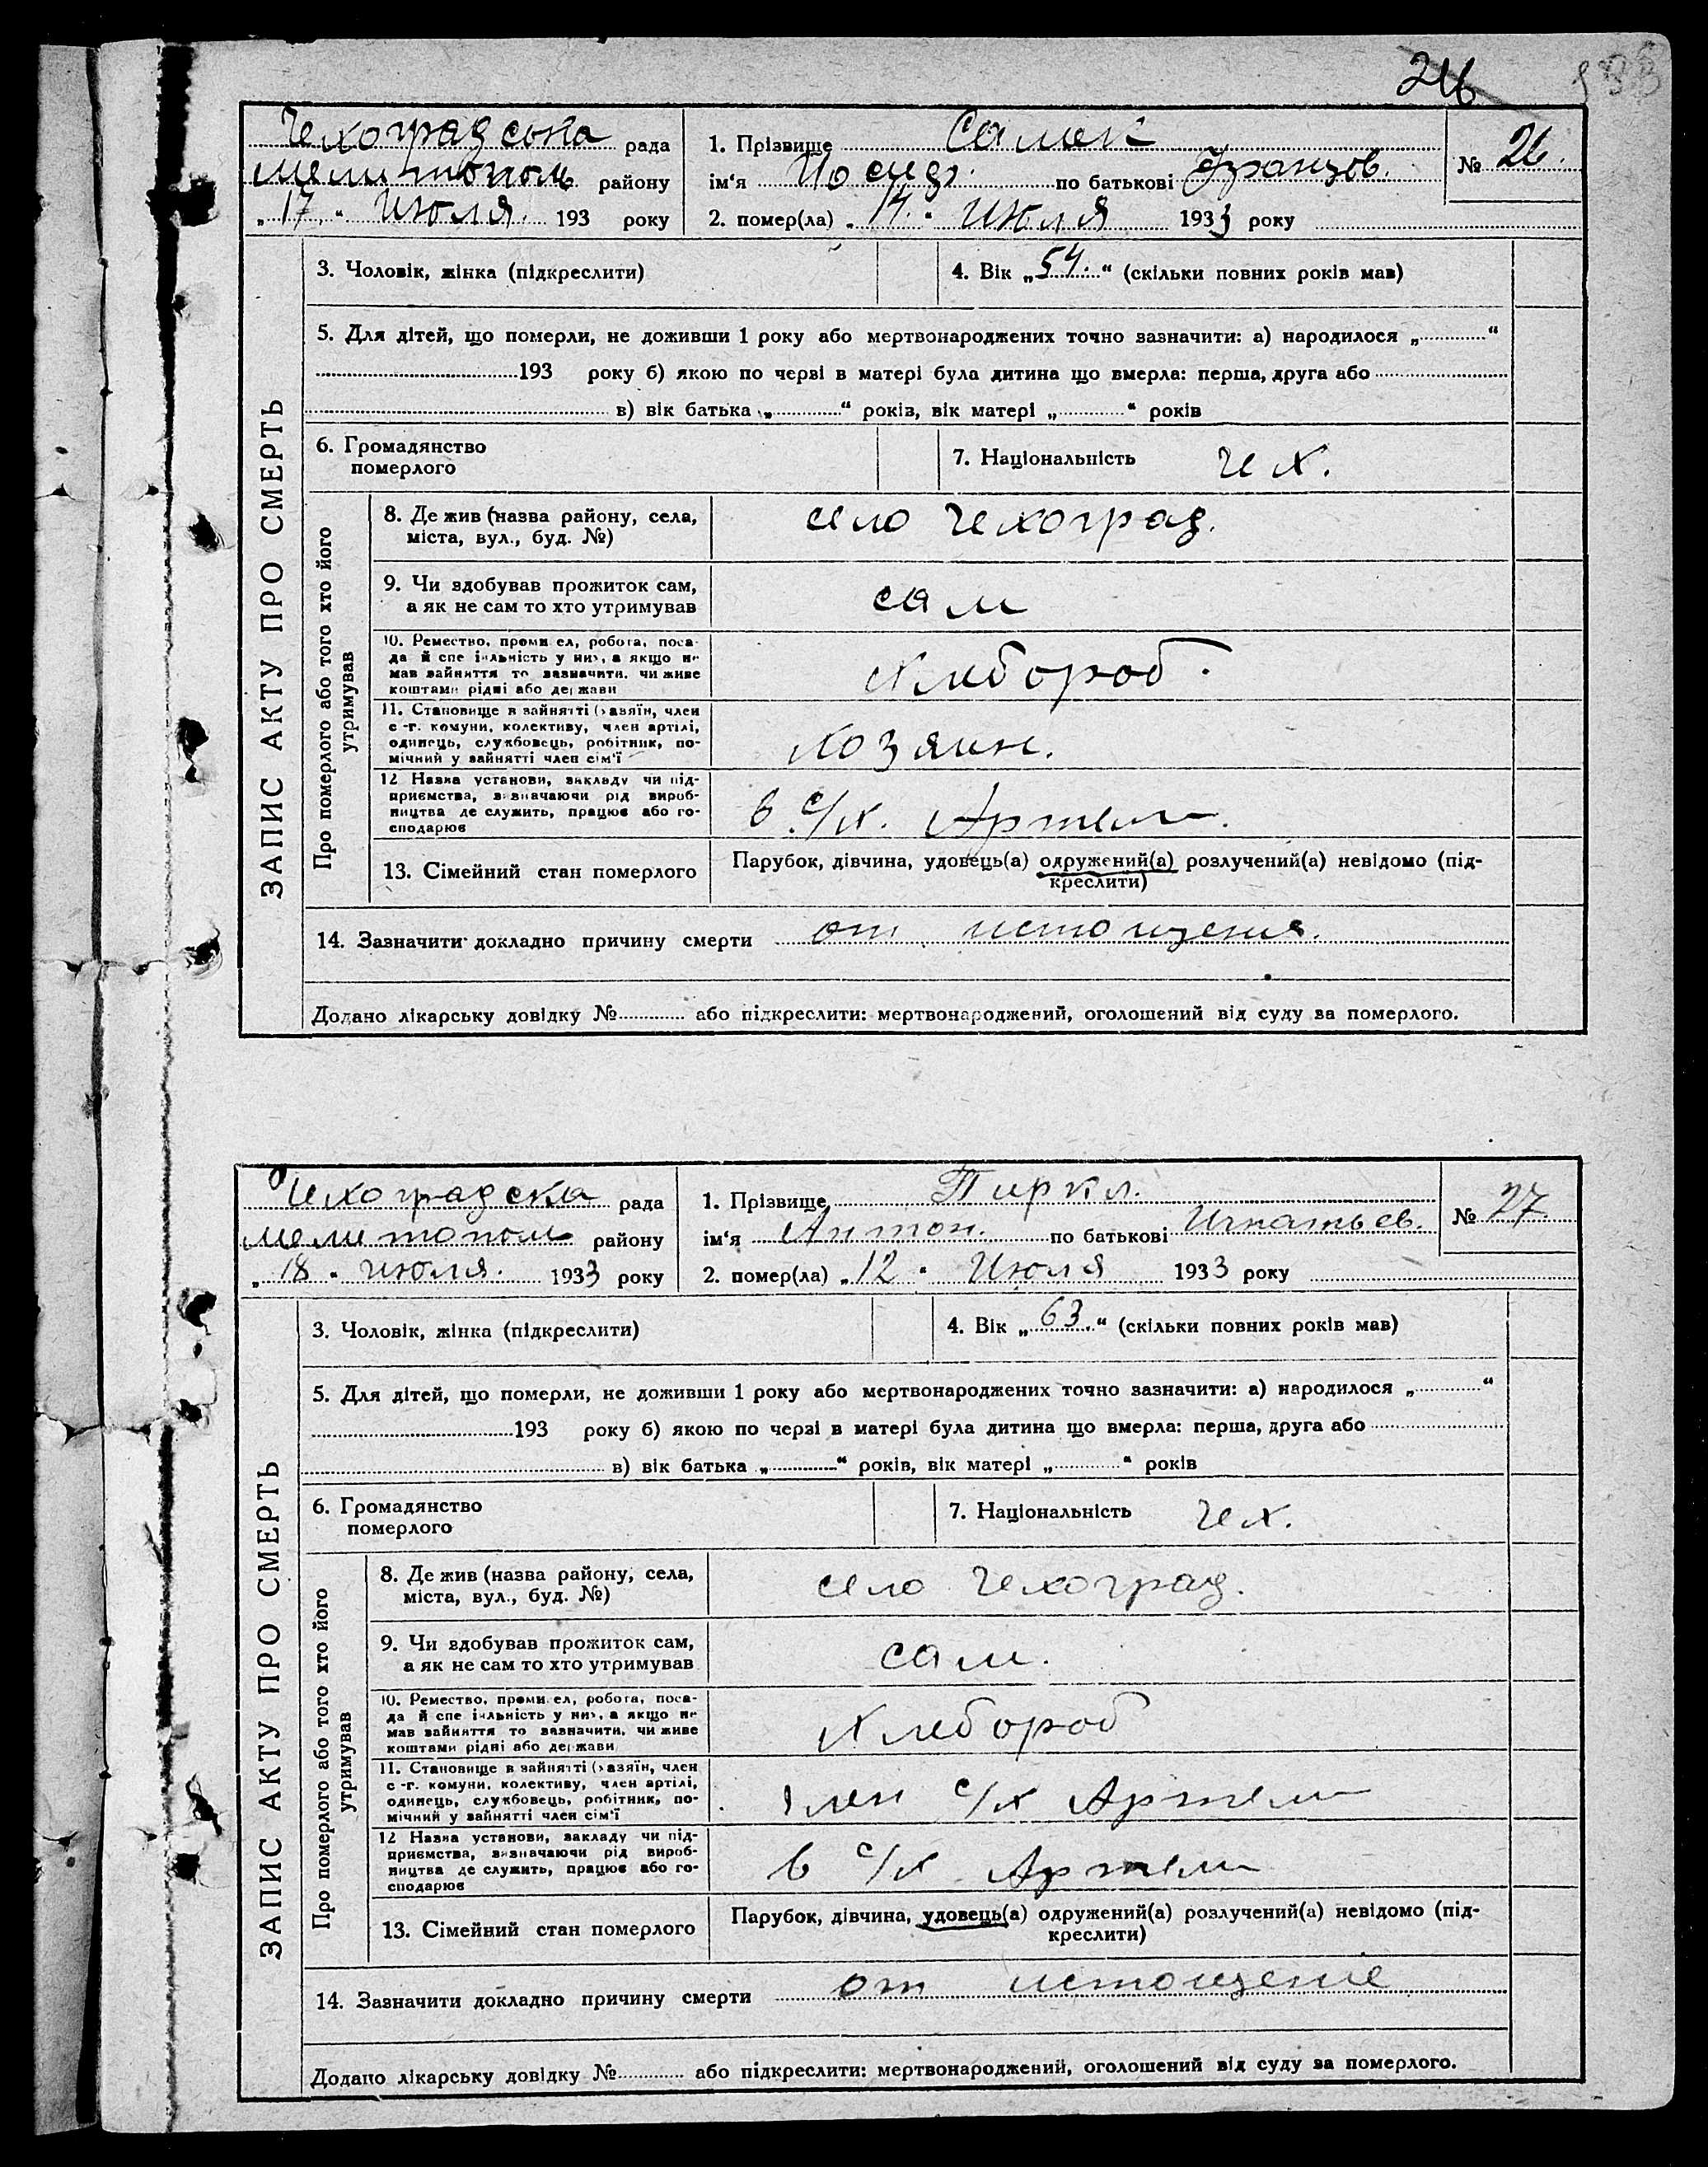 26
Чехоградська рада
Мелитополь району
„17„ Июля. 193 року
1. Прізвище Самек
ім'я Иосиф. по батькові Францов.
2. помер(ла) „14.“ Июля 1933 року
№ 26.
ЗАПИС АКТУ ПРО СМЕРТЬ
3. Чоловік, жінка (підкреслити)
4. Вік „54.“ (скільки повних років мав)
5. Для дітей, що померли, не доживши 1 року або мертвонароджених точно зазначити: а) народилося „ “
193 року б) якою по черзі в матері була дитина що вмерла: перша, друга або
в) вік батька „ “ років, вік матері „ “ років
6. Громадянство
померлого
7. Національність чех.
Про померлого або того хто його
утримував
8. Де жив (назва району, села,
міста, вул., буд. №)
село Чехоград.
9. Чи здобував прожиток сам,
а як не сам то хто утримував
сам
10. Ремество, промисел, робота, поса-
да й спеціяльність у них, а якщо не
мав зайняття то зазначити, чи живе
коштами рідні або держави
Хлебороб.
11. Становище в зайнятті (хазяїн, член
с.-г. комуни, колективу, член артілі,
одинець, службовець, робітник, по-
мічний у зайнятті член сім'ї
Хозяин.
12 Назва установи, закладу чи під-
приємства, визначаючи рід вироб-
ництва де служить, працює або го-
сподарює
в с/х. Артели.
13. Сімейний стан померлого
Парубок, дівчина, удовець(а) одружений(а) розлучений(а) невідомо (під-
креслити)
14. Зазначити докладно причину смерти от истощения.
Додано лікарську довідку № або підкреслити: мертвонароджений, оголошений від суду за померлого.
Чехоградска рада
Мелитополь району
„18„ июля. 1933 року
1. Прізвище Пиркл.
ім'я Антон. по батькові Игнатьев.
2. помер(ла) „12“ Июля 1933 року
№ 27
ЗАПИС АКТУ ПРО СМЕРТЬ
3. Чоловік, жінка (підкреслити)
4. Вік „63.“ (скільки повних років мав)
5. Для дітей, що померли, не доживши 1 року або мертвонароджених точно зазначити: а) народилося „ “
193 року б) якою по черзі в матері була дитина що вмерла: перша, друга або
в) вік батька „ “ років, вік матері „ “ років
6. Громадянство
померлого
7. Національність чех.
Про померлого або того хто його
утримував
8. Де жив (назва району, села,
міста, вул., буд. №)
село Чехоград.
9. Чи здобував прожиток сам,
а як не сам то хто утримував
сам.
10. Ремество, промисел, робота, поса-
да й спеціяльність у них, а якщо не
мав зайняття то зазначити, чи живе
коштами рідні або держави
Хлебороб
11. Становище в зайнятті (хазяїн, член
с.-г. комуни, колективу, член артілі,
одинець, службовець, робітник, по-
мічний у зайнятті член сім'ї
Член с/х Артели
12 Назва установи, закладу чи під-
приємства, визначаючи рід вироб-
ництва де служить, працює або го-
сподарює
в с/х Артели
13. Сімейний стан померлого
Парубок, дівчина, удовець(а) одружений(а) розлучений(а) невідомо (під-
креслити)
14. Зазначити докладно причину смерти от истощение
Додано лікарську довідку № або підкреслити: мертвонароджений, оголошений від суду за померлого.